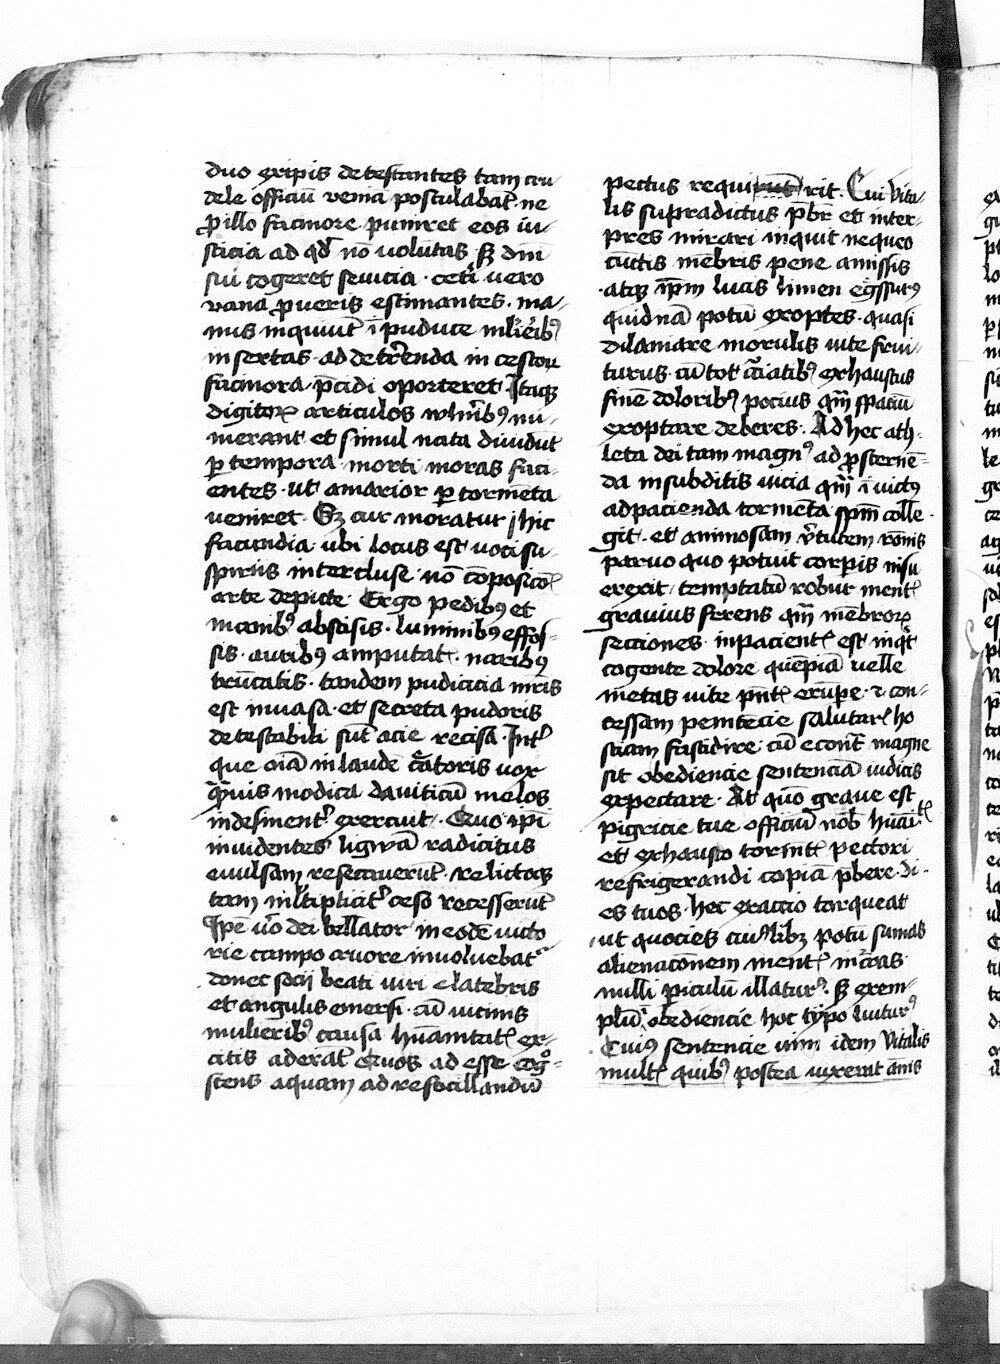 duo eripis detestantes tam cru-
dele officiū veniā postulabāt ne
ꝓ illo facinore puniret eos iu-
sticia ad qd' nō volūtas sꝫ dn̄i
sui cogeret sevicia · cet'i vero
vana ꝓ veris estimantes · ma-
nus inquiūt ī pudice ml̄ieribꝰ
insertas · ad detr̄enda in cestorū
facinora p̄cidi oporteret · Itaqꝫ
digitoꝝ articulos vuln̄ibꝰ nu-
merant et simul nata diuidūt
ꝑ tempora · morti moras faci-
entes · ut amarior ꝑ tormēta
veniret · Sꝫ cur moratur hic
facundia ubi locus est voti su-
spiriis intercluse · nō cōposicōē
arte depicte · Ergo pedibꝰ et
manibꝰ abscisis · luminibꝰ effos-
sis · auribꝰ amputatis · naribꝰ
trūcatis · tandem pudicicia mr̄is
est inuasa · et secreta pudoris
detestabili sūt acie recisa · Int'
que oīa in laude cātoris vox
q̄uis modica dauiticū melos
indesinent' exercuit · Quo ip̄i
inuidentes ligwā radicitus
euulsam resecauerūt · relictoqꝫ
tam ml̄tiplicit' ceso recesserūt
Ip̄e v̄o dei bellator in eodē victo-
rie campo cruore inuoluebat'
donec socij beati viri e latebris
et angulis emersi · cū vicinis
mulieribꝰ causa hūanitatis ex-
citis aderāt Quos ad esse cog°-
scens aquam ad refocillandū
pectus requirit · Cui Vita-
lis supradictus p̄br et inter-
pres mirari inquit nequeo
cūctis mēbris pene amissis
atqꝫ ip̄m lucis limen eḡssurꝰ
quidnā potū exoptes · quasi
dilaniare morulis vite frui-
turus · cū tot c̄ciatibꝰ exhaustus
finē doloribꝰ pocius qm̄ spaciū
exoptare deberes · Ad hec ath-
leta dei tam magnꝰ ad ꝓsternē-
da insubditis vicia qm̄ īuictꝰ
ad pacienda tormēta spm̄ colle-
git · et animosam v̄tutem rōnis
paruo quo potuit corꝑis nisu
erexit · temptatū robur mentis
grauius ferens qm̄ mēbroꝝ
secciones · inpacientis est inqͥt
cogente dolore quēpiā velle
metas vite p̄ntis erūpe · ⁊ con-
cessam penitecie salutaris ho-
sticiam fastidire cū econt̄ magne
sit obediencie sentenciā iudicis
expectare · At quō graue est
pigricie tue officiū nob̄ hūaītis
et exhausto tormtis pectori
refrigerandi copiā p̄bere · di-
es tuos · hec exaccio torqueat
ut quocies cuiꝰlibꝫ potū sumas
alienacōnem mentis incr̄as
nulli piculū illaturꝰ · Sꝫ exem-
plū obediencie hoc typo luiturꝰ
Cuiꝰ sentencie vim idem Vitalis
multis quibꝰ postea vixerat ānis